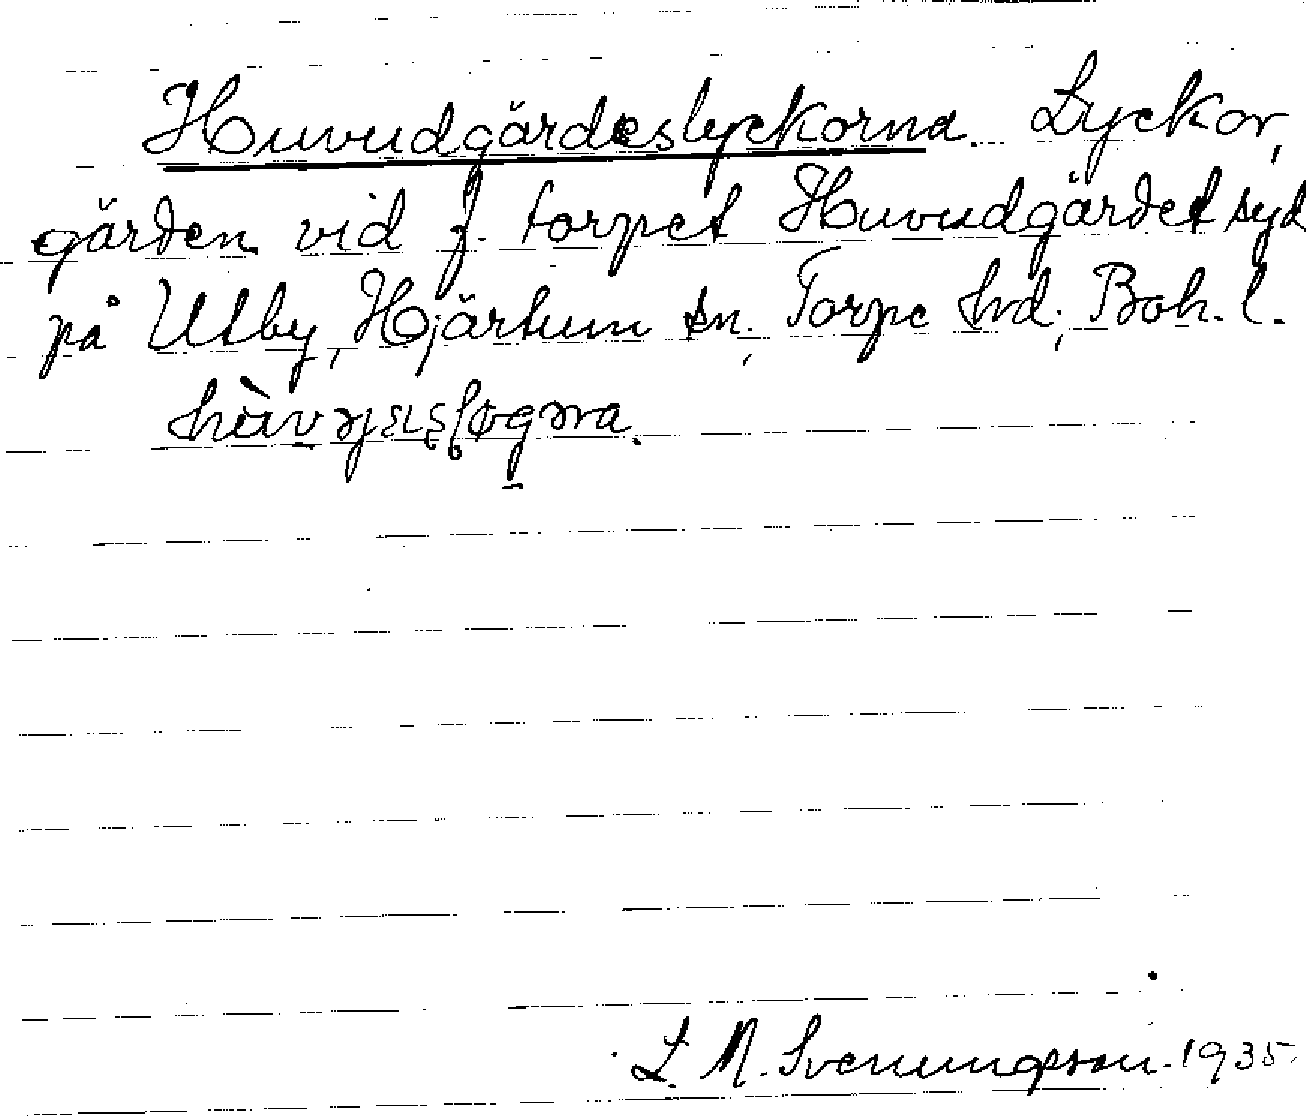 Huvudgärdeslyckorna. Lyckor,
gärden vid f. torpet Huvudgärdet syd
på Utby, Hjärtum sn., Torpe hd., Boh. l.
L. M. Svenungsson. 1935.